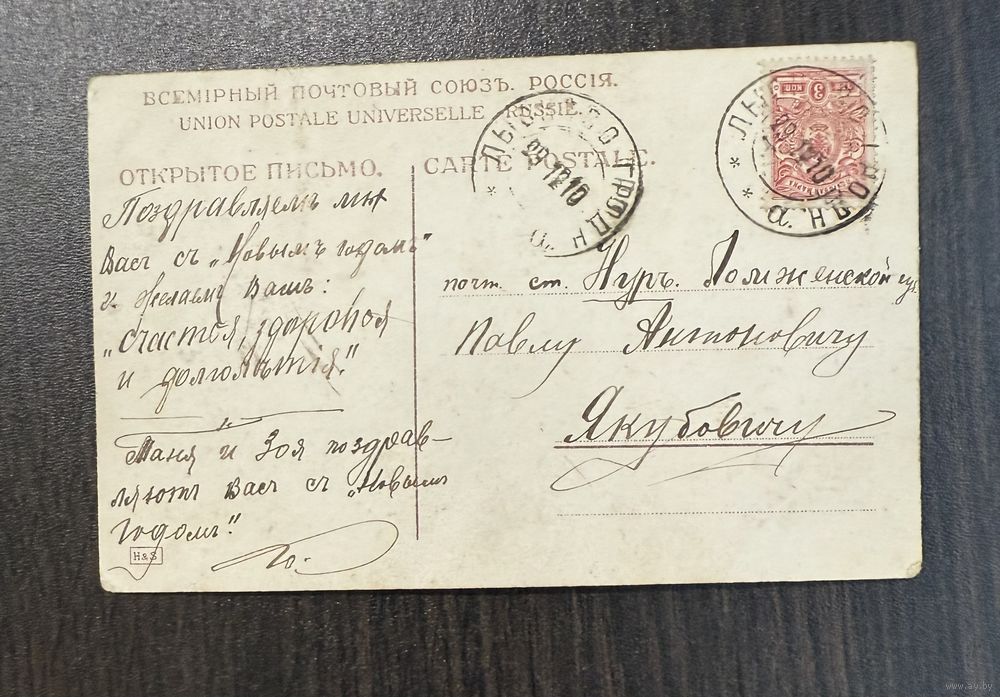 ВСЕМІРНЫЙ ПОЧТОВЫЙ СОЮЗЪ. РОССІЯ.
UNION POSTALE UNIVERSELLE. RUSSIE.
ОТКРЫТОЕ ПИСЬМО.
CARTE POSTALE.
Поздравляемъ
Васъ съ „Новымъ годомъ"
и желаемъ Вамъ:
„счастья, здоровья
и долголѣтія."
Маня и Зоя поздрав-
ляютъ Васъ съ „новымъ
годомъ".
Ю.
H&S
почт. ст. Нуръ. Ломженской губ.
Павлу Антоновичу
Якубовичу
29 12 10
29 12 10
3 КОП
www.ay.by